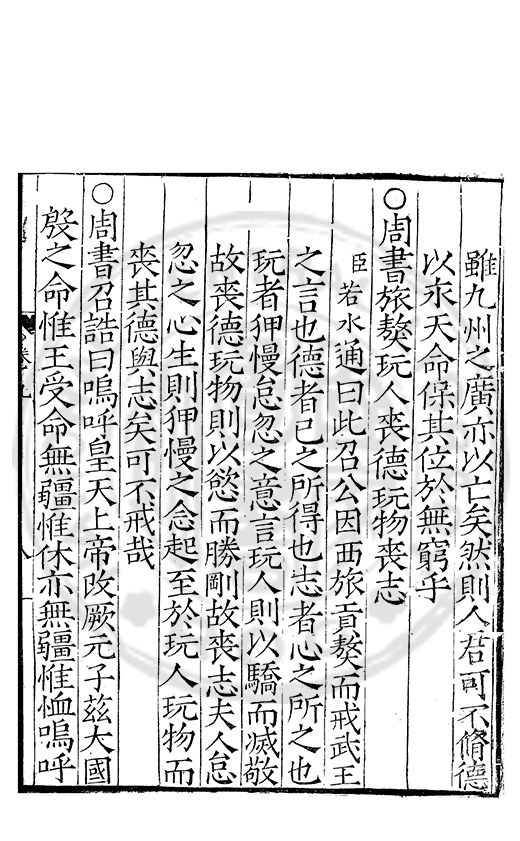 雖九州之廣亦以亡矣然則人君可不脩德
以永天命保其位於無窮乎
○周書旅獒玩人喪德玩物喪志
臣若水通曰此召公因西旅貢獒而戒武王
之言也德者己之所得也志者心之所之也
玩者狎慢怠忽之意言玩人則以驕而滅敬
故喪德玩物則以慾而勝剛故喪志夫人怠
忽之心生則狎慢之念起至於玩人玩物而
喪其德與志矣可不戒哉
○周書召誥曰嗚呼皇天上帝改厥元子茲大國
殷之命惟王受命無疆惟休亦無疆惟恤嗚呼